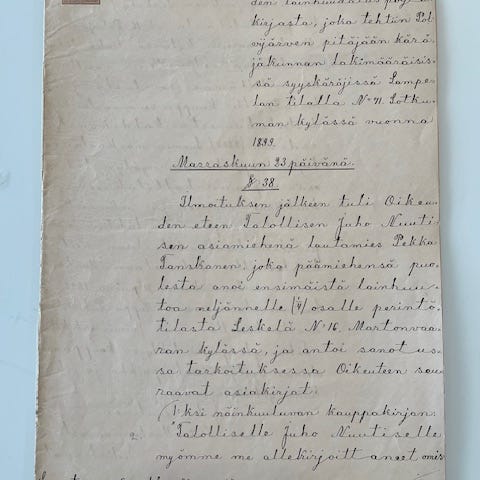 den lainhuudatus pöy
kirjasta, joka tehtün Pol
vijärven pitäjään kärä
jäkunnan lakimääräisis
sä syyskäräjissä Lampe
lan tilalla N:o 71. Sotku
man kylässä vuonna
1899.
Marraskuun 23 päivänä.
§ 38.
Ilmoituksen jälkeen tuli Oikeu
den eteen Talollisen Juho Nuuti
sen asiamiehenä lautamies Pekka
Tanskanen, joka päämiehensä puo
lesta anoi ensimäistä lainhuu
toa neljännelle (1/4) osalle perintö
tilasta Leskelä N:o 16, Martonvaa
ran kylässä, ja antoi sanot us
sa tarkoituksessa Oikeuteen seu
raavat asiakirjat:
1:ksi näinkuuluvan kauppakirjan:
"Talolliselle Juho Nuutiselle
myömme me allekirjoitt aneet omis